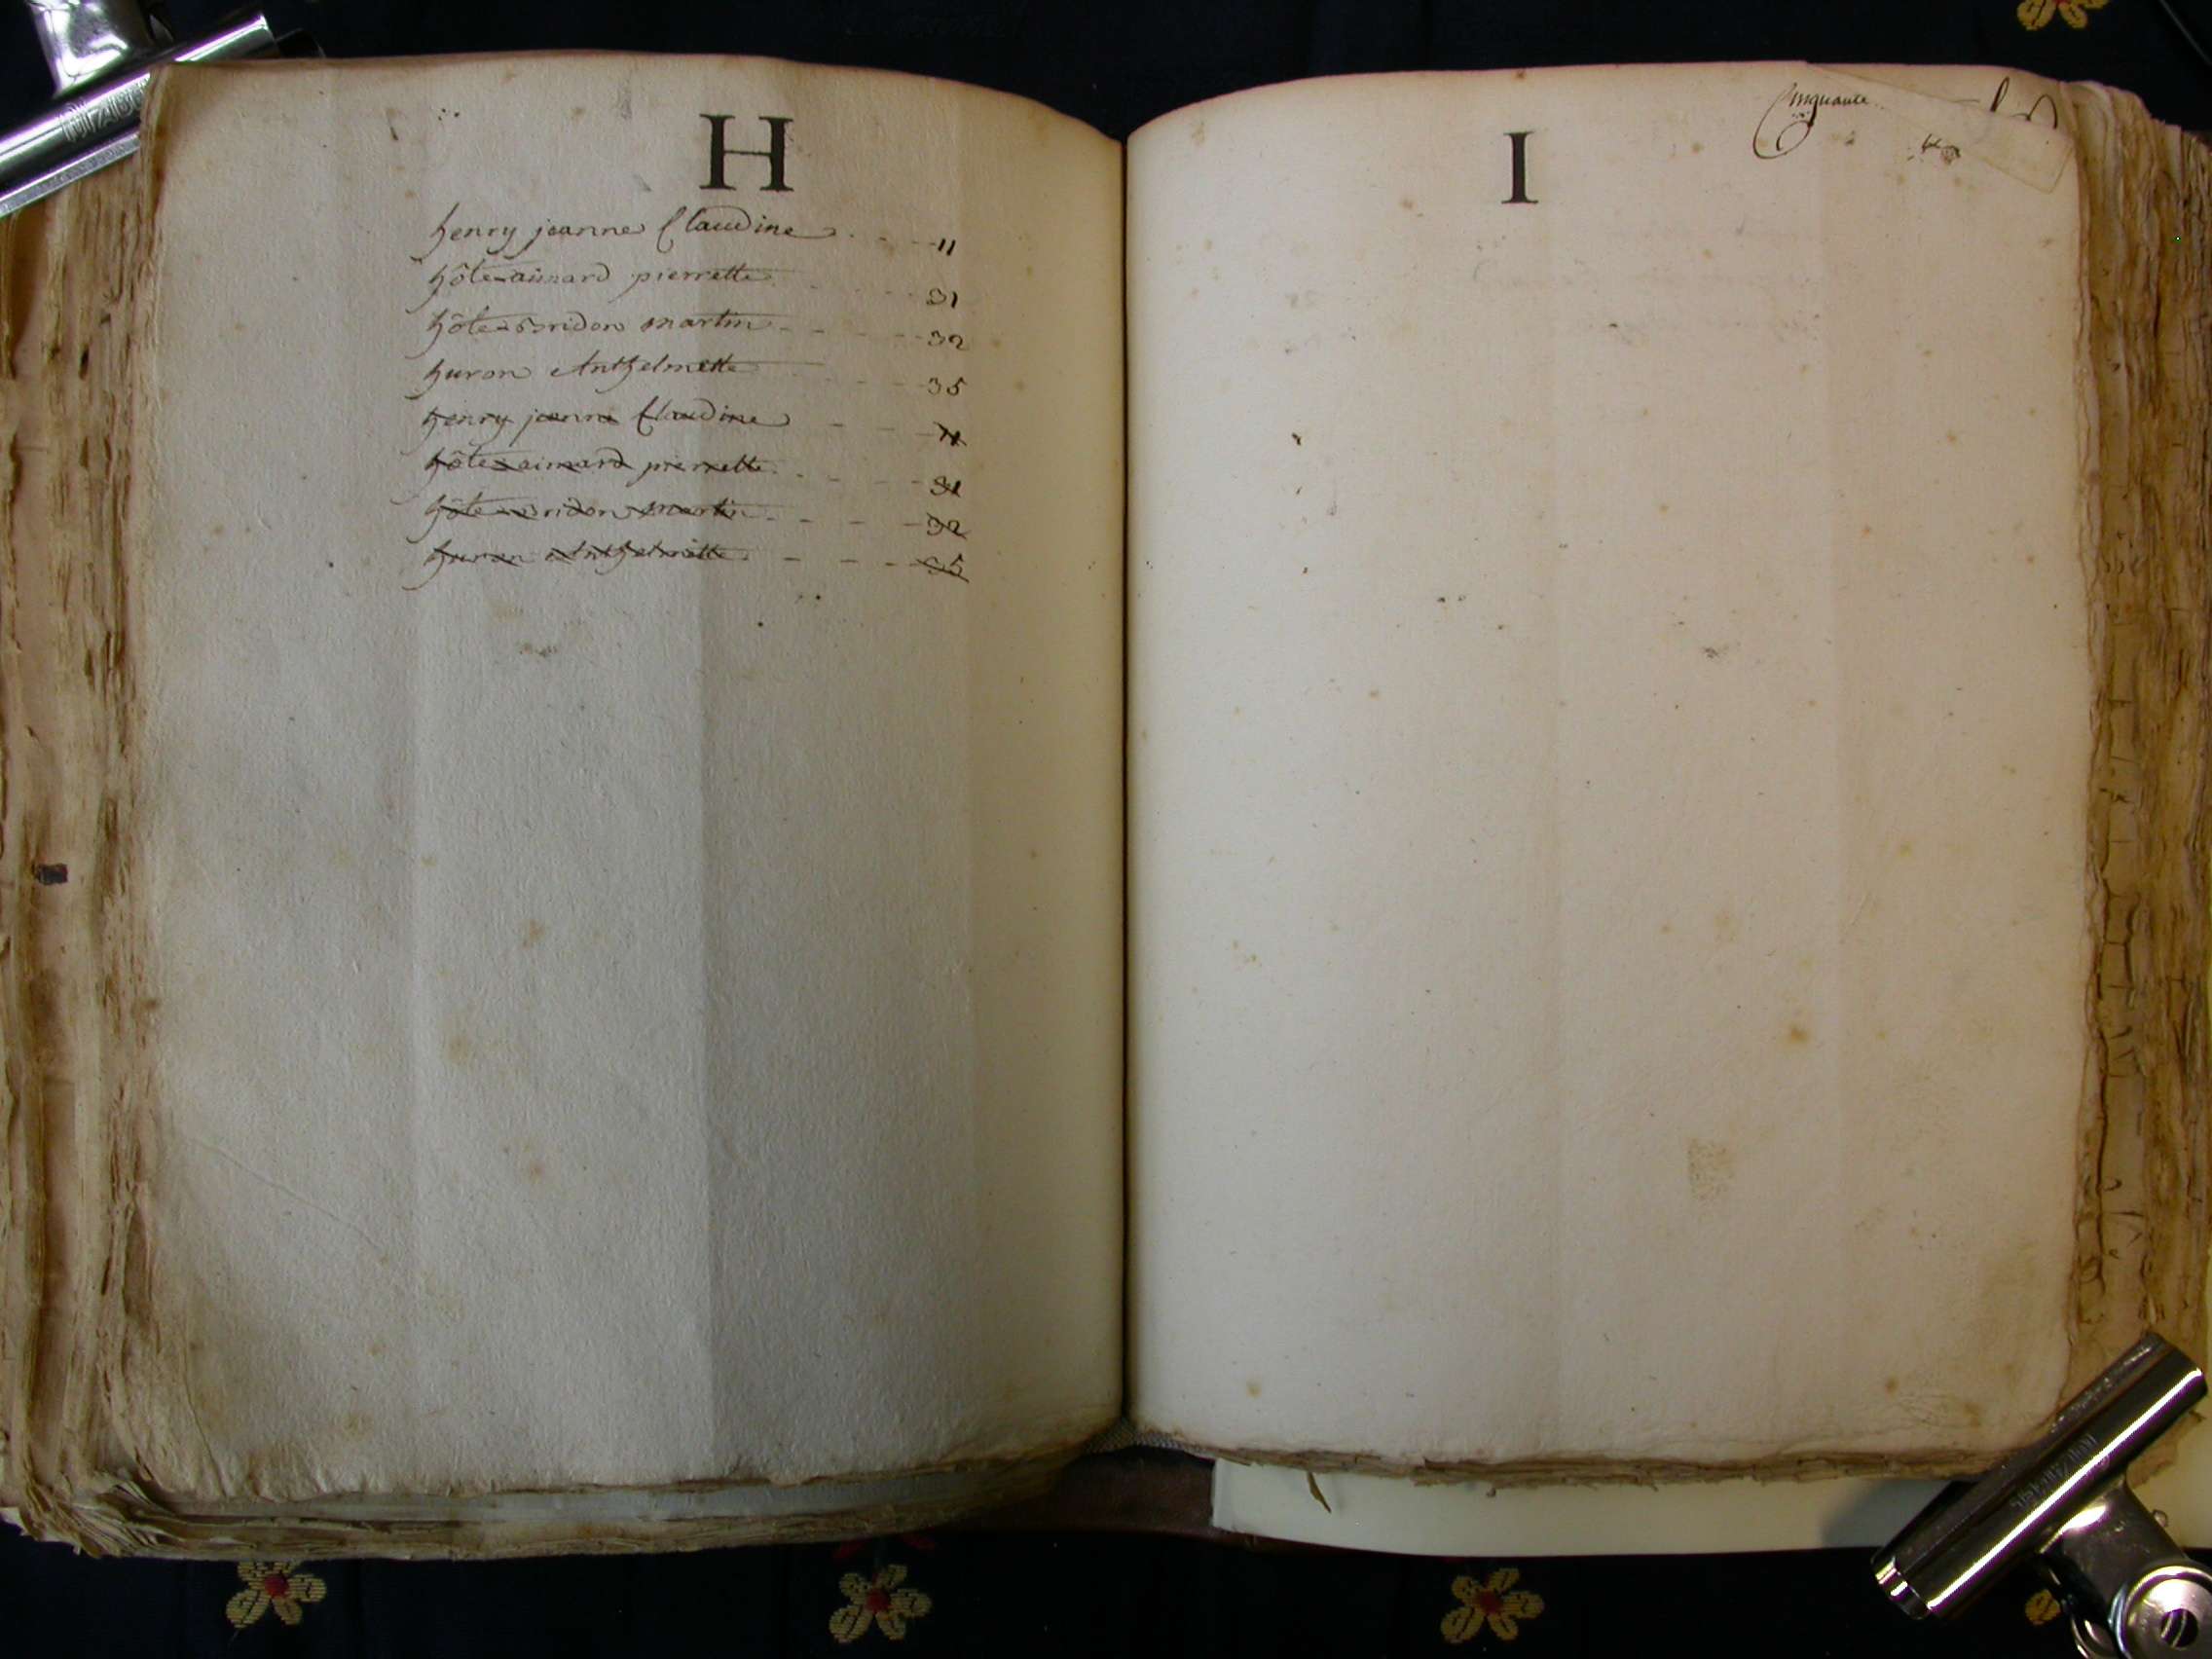 H
henry jeanne Claudine 11
hôte-aimard pierrette 31
hôte-oridon martin 32
huron Anthelmette 35
henry jeanne Claudine 11
hôte-aimard pierrette 31
hôte-oridon martin 32
huron Anthelmette 35
Cinquante
I